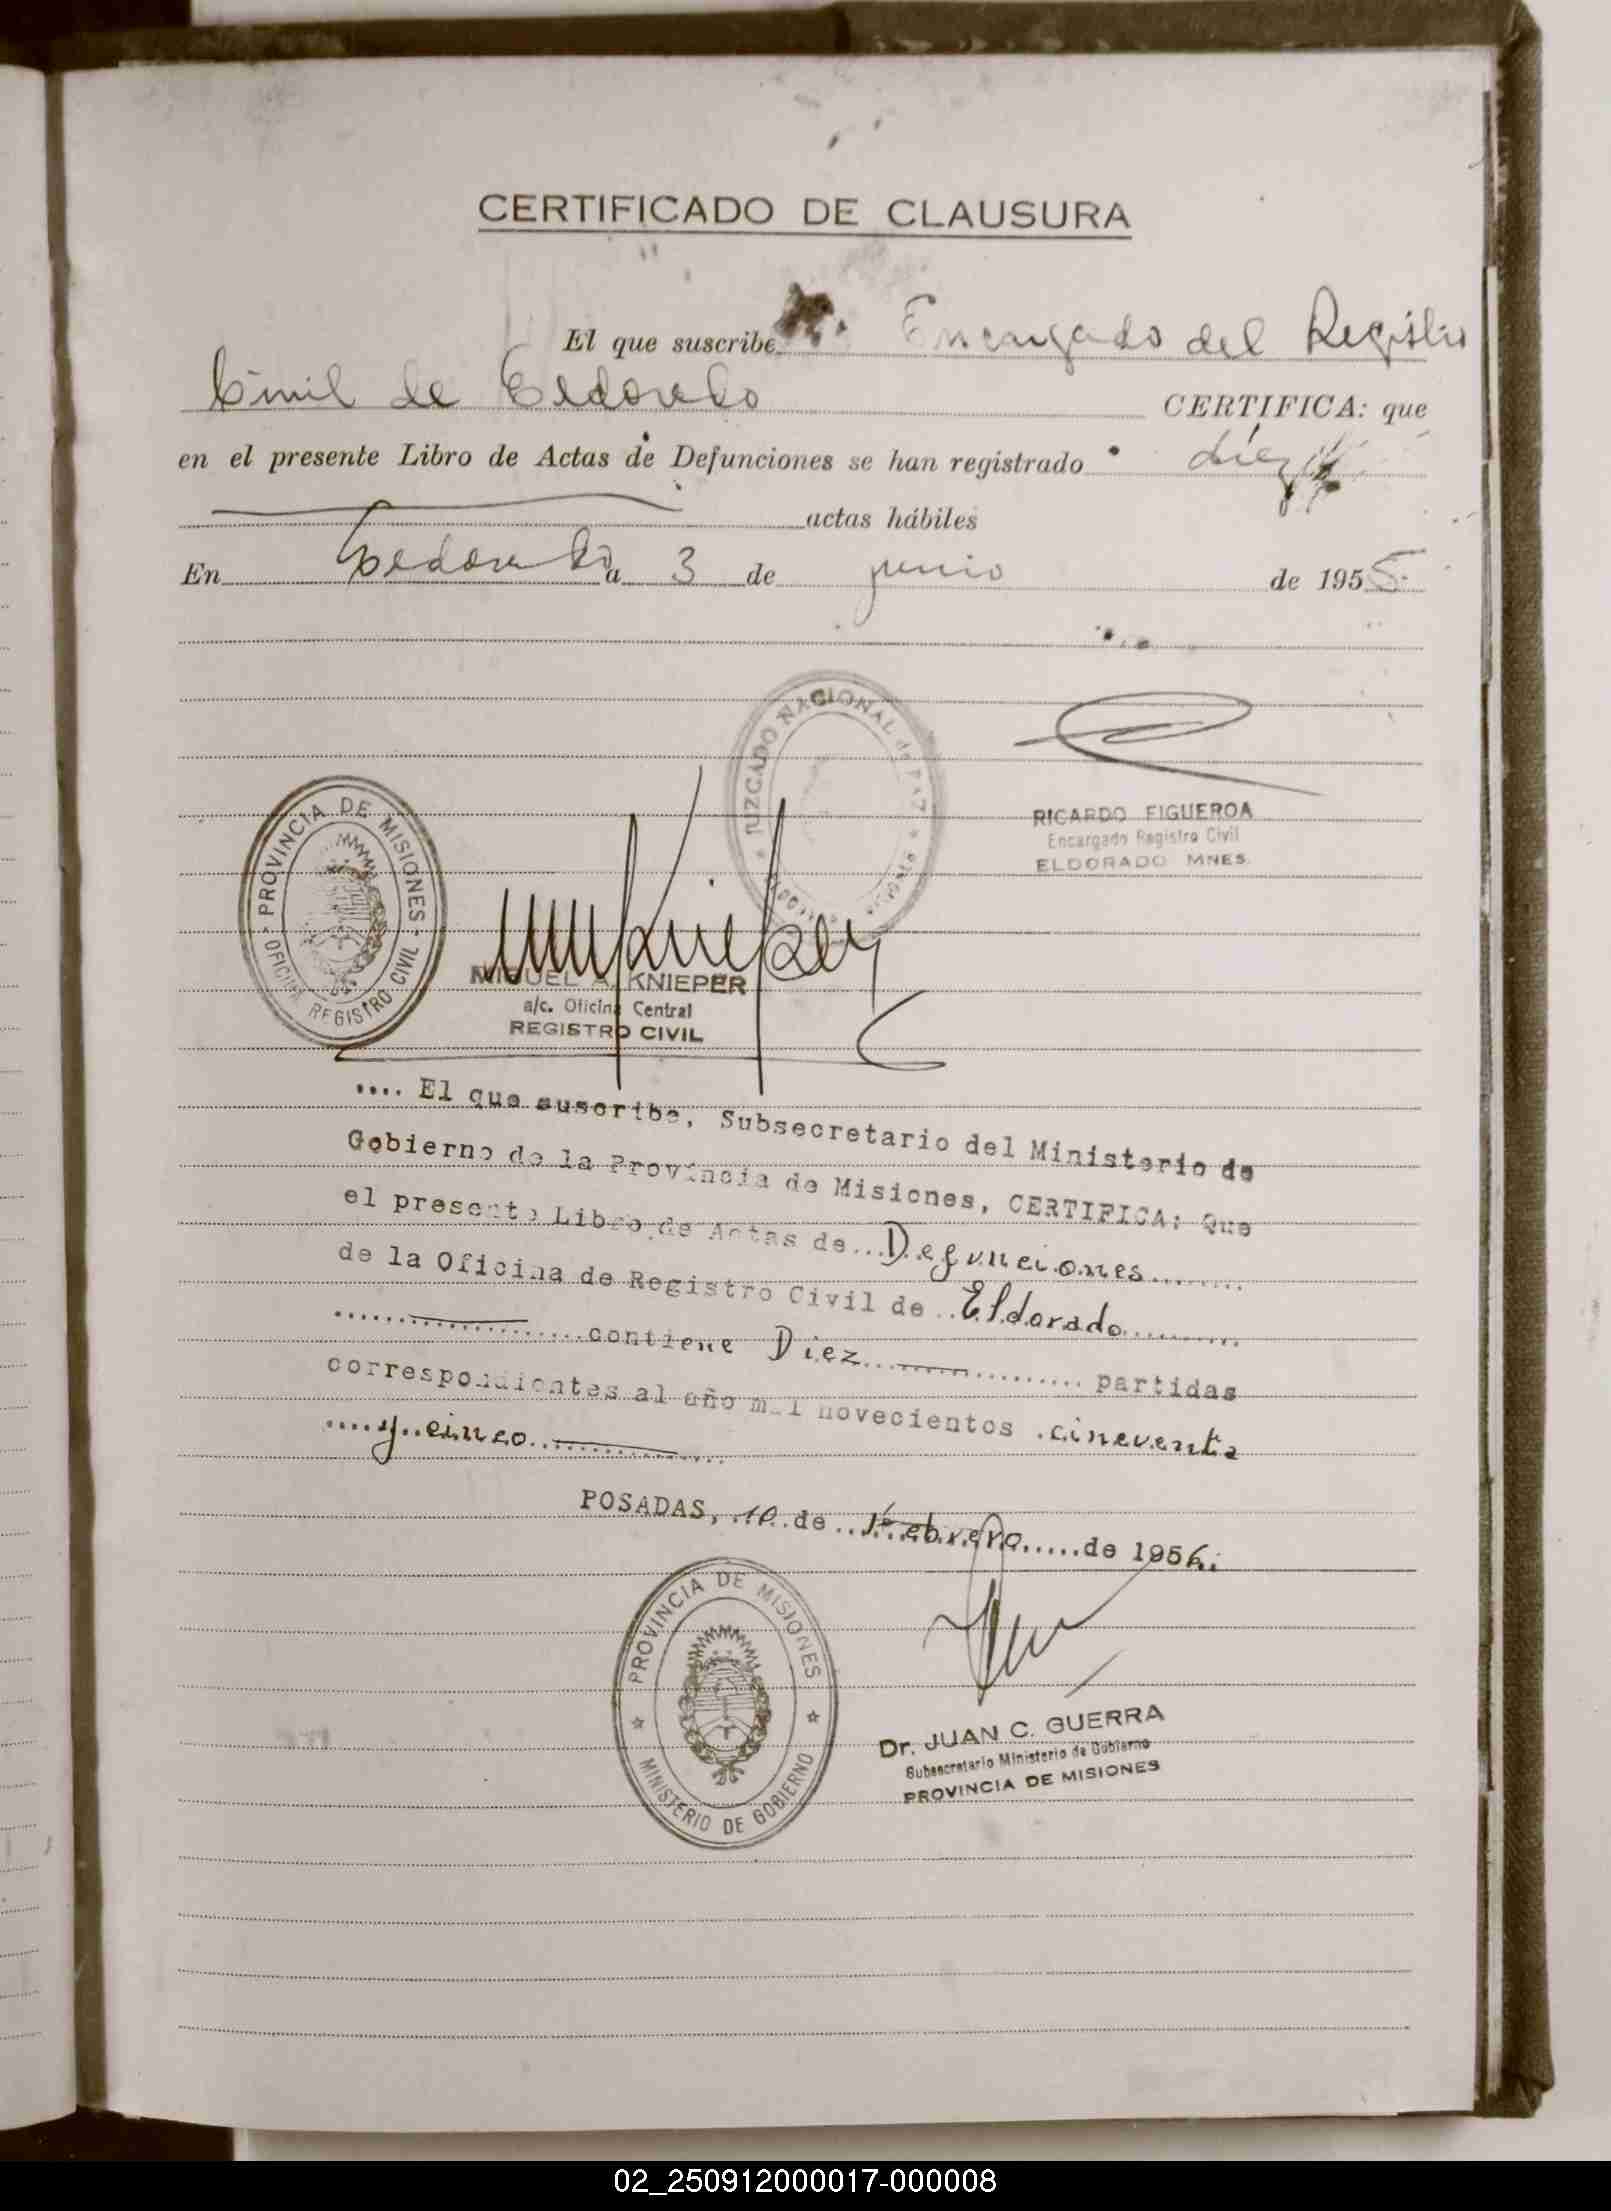 CERTIFICADO DE CLAUSURA
El que suscribe Encargado del Registro
Civil de Eldorado CERTIFICA: que
en el presente Libro de Actas de Defunciones se han registrado diez
actas hábiles
En Eldorado a 3 de junio de 1955
JUZGADO NACIONAL de PAZ
RICARDO FIGUEROA
Encargado Registro Civil
ELDORADO MNES.
PROVINCIA DE MISIONES
OFICINA REGISTRO CIVIL
MIGUEL A. KNIEPER
a/c. Oficina Central
REGISTRO CIVIL
.... El que suscribe, Subsecretario del Ministerio de
Gobierno de la Provincia de Misiones, CERTIFICA: Que
el presente Libro de Actas de...Defunciones........
de la Oficina de Registro Civil de ..Eldorado..........
......................contiene Diez................... partidas
correspondientes al año mil novecientos .cincuenta
....y..cinco....................
POSADAS, .10..de ...Febrero.....de 1956.
PROVINCIA DE MISIONES
MINISTERIO DE GOBIERNO
Dr. JUAN C. GUERRA
Subsecretario Ministerio de Gobierno
PROVINCIA DE MISIONES
02_250912000017-000008